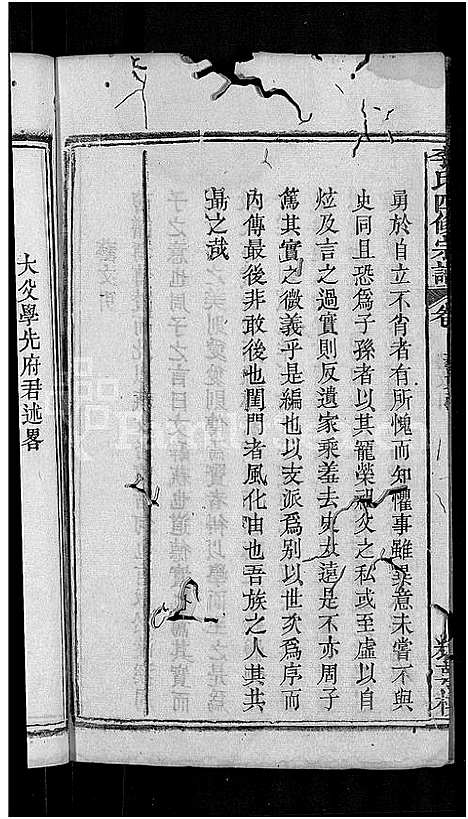 李氏四修宗譜 卷
勇於自立不肖者有所愧而知懼事雖異意未嘗不與
史同且恐爲子孫者以其寵榮祖父之私或至虛以自
炫及言之過實則反遺家乘羞去史玄遠是不亦周子
篤其實之微義乎是編也以支派爲别以世次爲序而
內傳最後非敢後也閨門者風化由也吾族之人其共
勗之哉
大父學先府君述畧